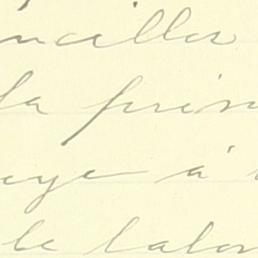 nciller
la prin
eye à
le labor